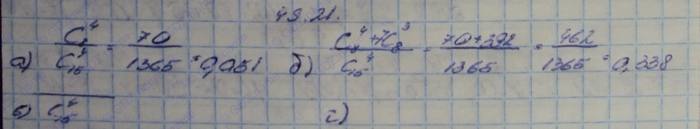 49.21.
а) C₈⁴ / C₁₅⁴ = 70 / 1365 = 0,051 б) C₈⁴ + 7C₈³ / C₁₅⁴ = 70+392 / 1365 = 462 / 1365 = 0,338
в) C₁₅⁴ г)